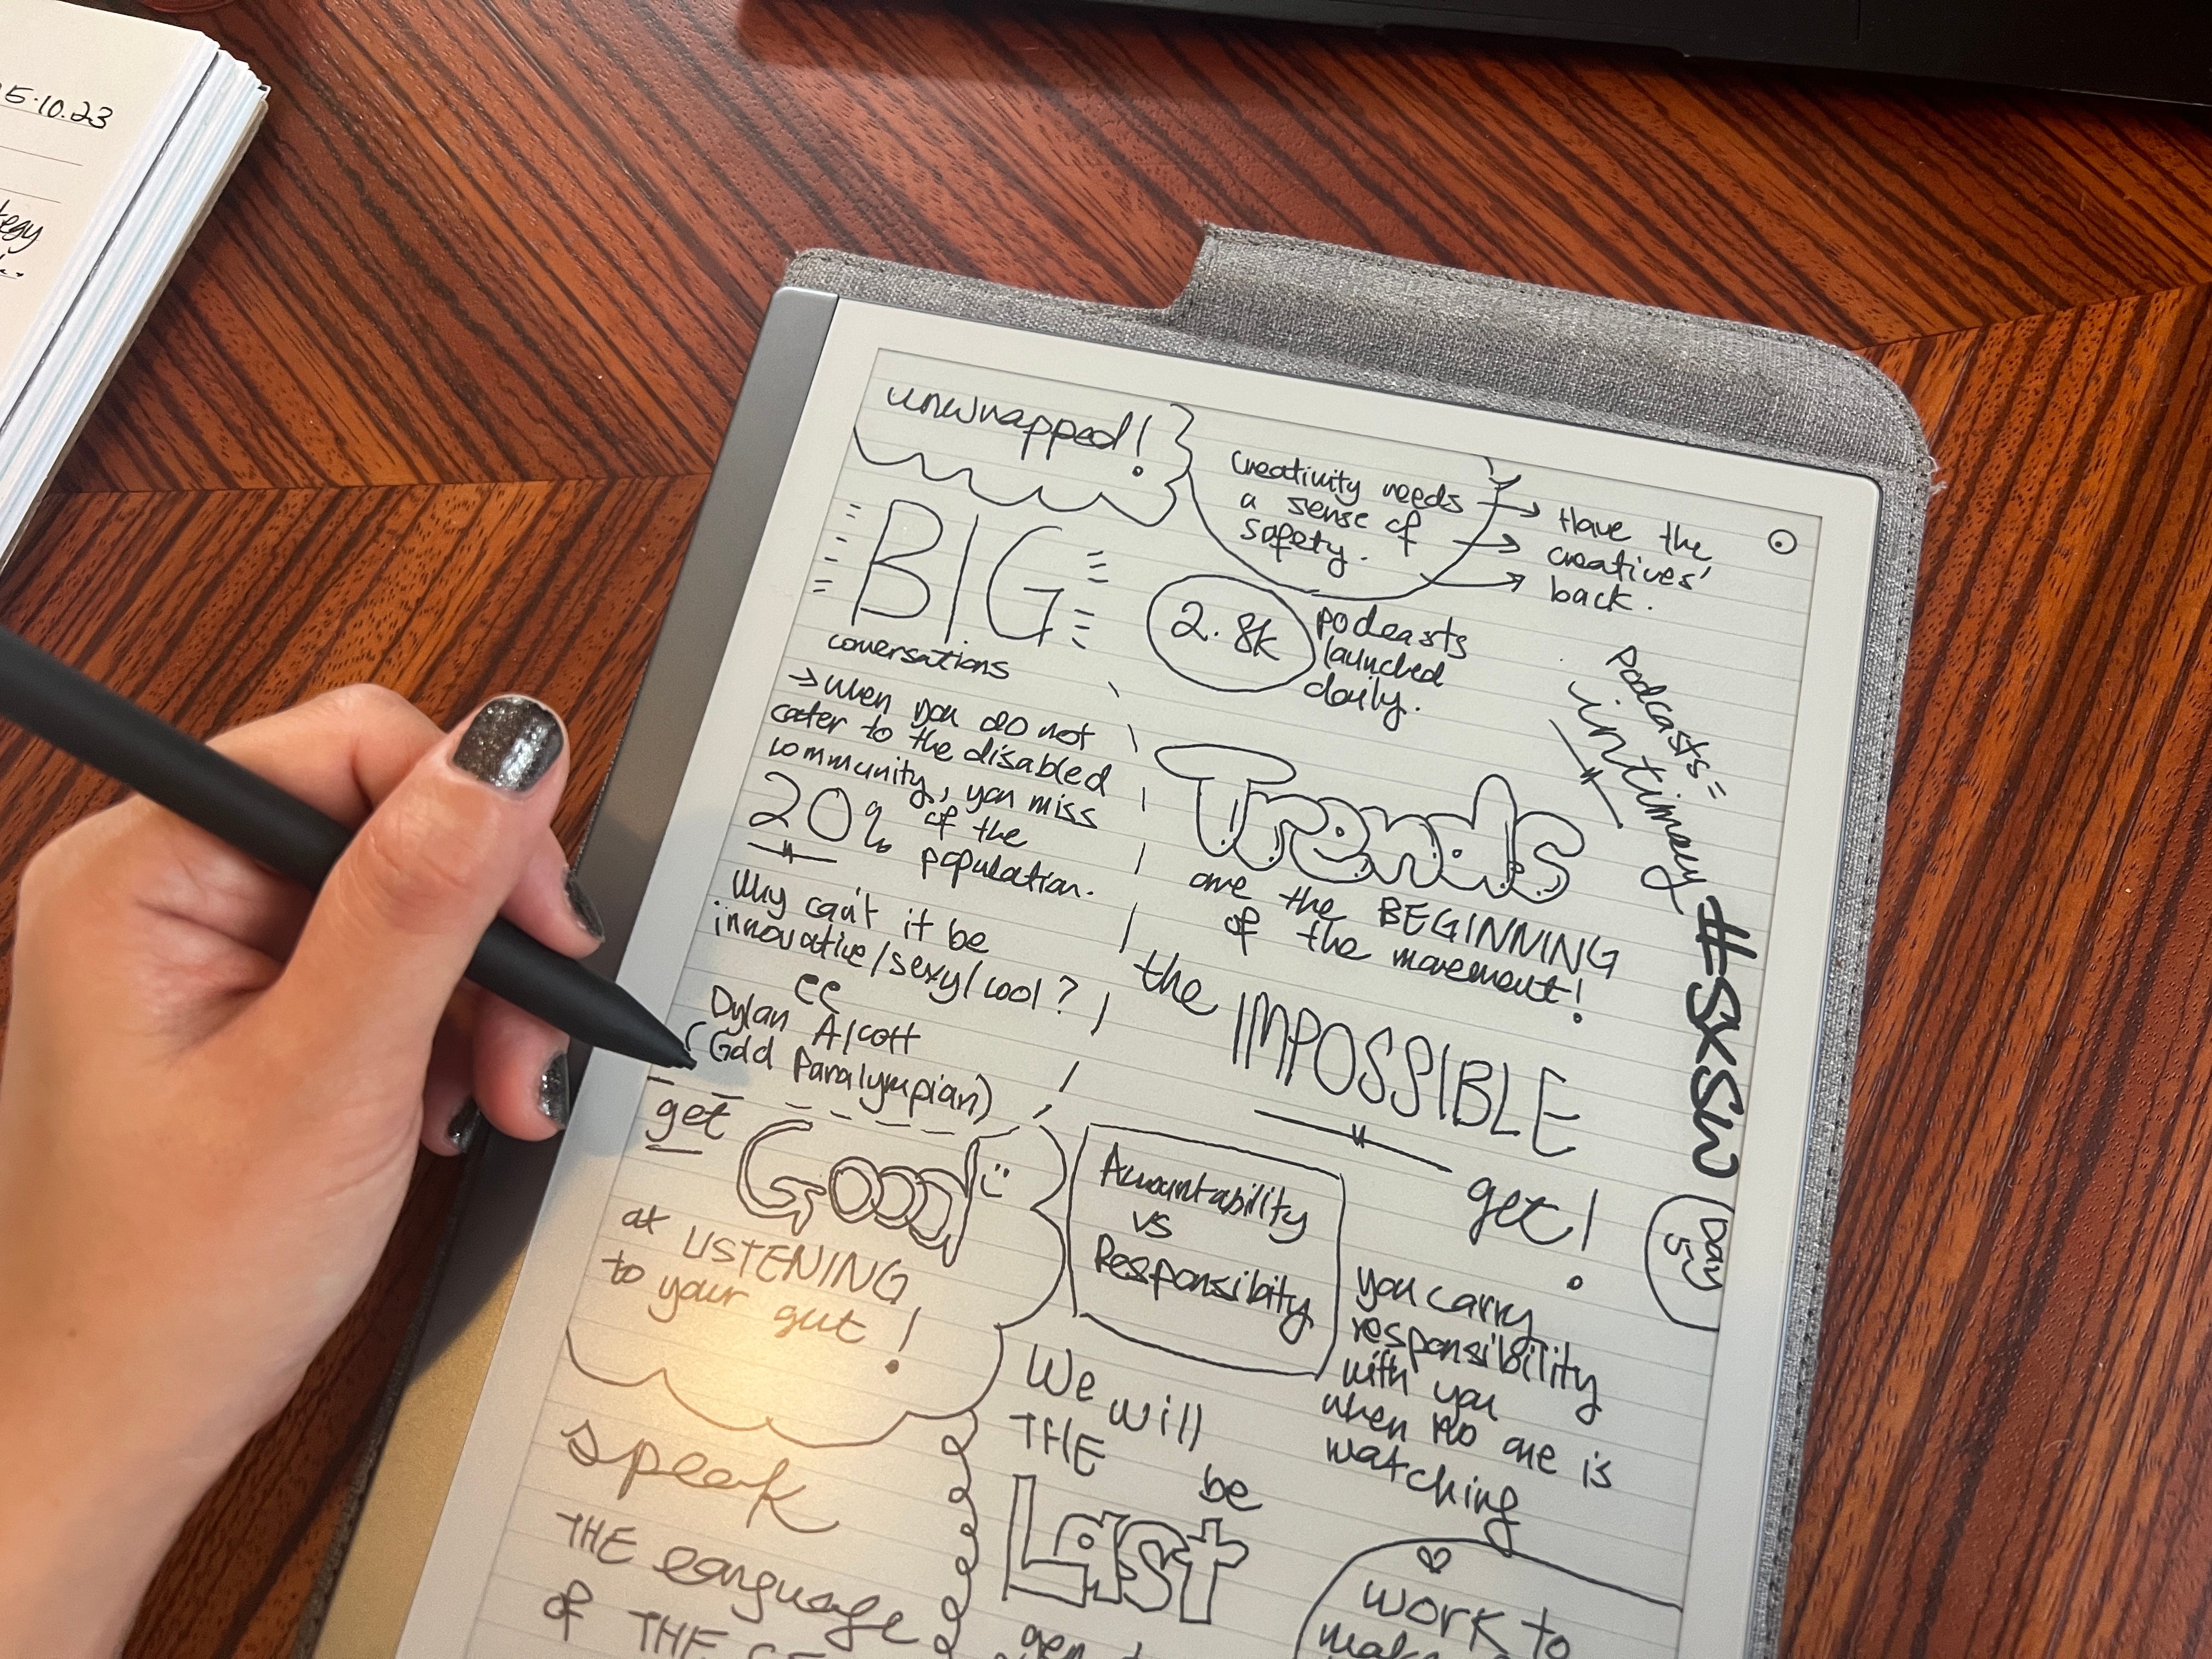 5.10.23
tegy
unwrapped!
Creativity needs
a sense of
safety.
Have the
creatives'
back.
BIG
conversations
2.8k
podcasts
launched
daily.
Podcasts =
intimacy
→ When you do not
cater to the disabled
community, you miss
20% of the
population.
Why can't it be
innovative/sexy/cool?
Dylan Alcott
(Gold Paralympian)
Trends
are the BEGINNING
of the movement!
the IMPOSSIBLE
get!
#SXSW
Day
5
get Good
at LISTENING
to your gut!
Accountability
vs
Responsibity
you carry
responsibility
with you
when no one is
watching
We will
THE be
Last
speak
THE language
of THE
work to